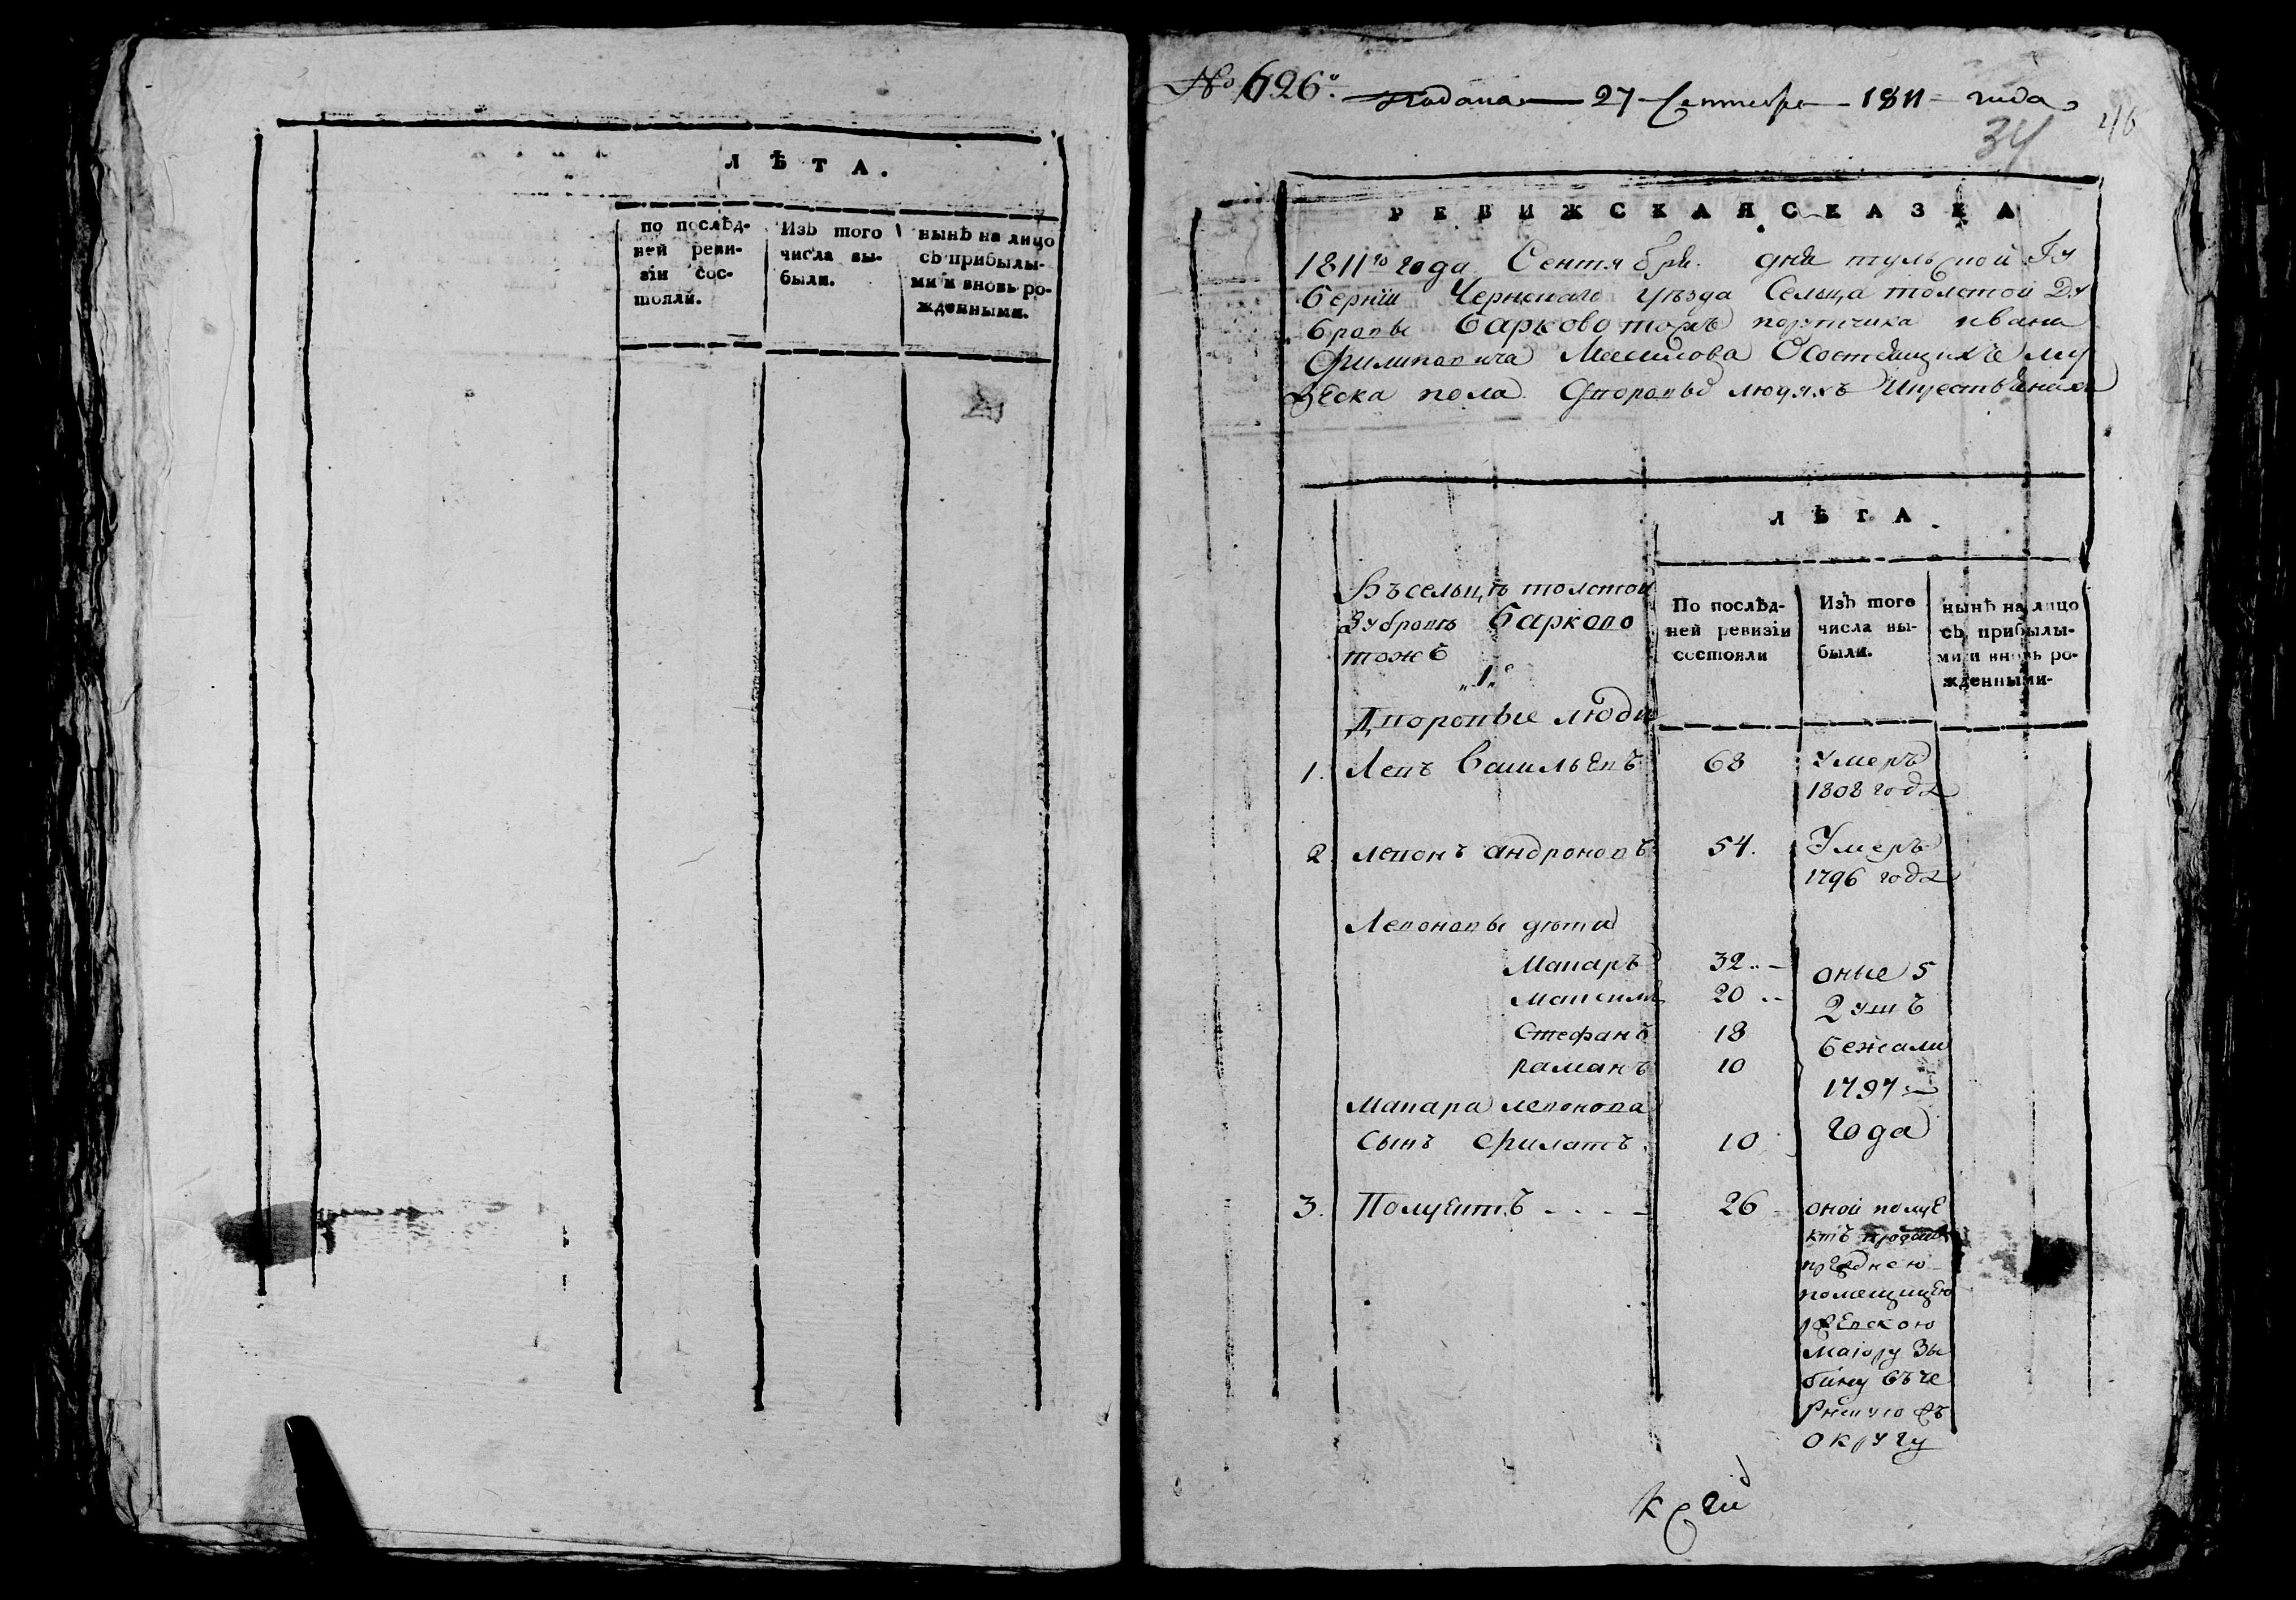 ЛѢТА.
по послѣд-
ней реви-
зіи сос-
тояли.
Изъ того
числа вы-
были.
нынѣ на лицо
съ прибылы-
ми и вновь ро-
жденными.
№ 626.
Подана 27 Сентября 1811 года
34
РЕВИЖСКАЯ СКАЗКА
1811го года Сентября дня тульской Гу
берніи Чернскаго уѣзда Сельца толстой Ду
бровы барково тожъ порутчика ивана
Филиповича О состоящихъ му
жеска пола дворовыхъ людяхъ
ЛѢТА.
Въ сельцѣ толстой
дубровѣ барково
тожъ
„1е
Дворовые люди
По послѣд-
ней ревизіи
состояли
Изъ того
числа вы-
были.
нынѣ на лицо
съ прибылы-
ми и вновь ро-
жденными-
1. Левъ Васильевъ 68 Умеръ
1808 года
2 левонъ андроновъ 54. Умеръ
1796 года
Левоновы дѣти
Макаръ 32
Максимъ 20
Стефанъ 18
раманъ 10
оные 5
душъ
бежали
1797
года
Макара левонова
Сынъ Филатъ 10
3. Полуектъ 26
оной полуе
ктъ проданъ
преднею
помещицею
маіору Зы
бину въ че
рнскую
округу